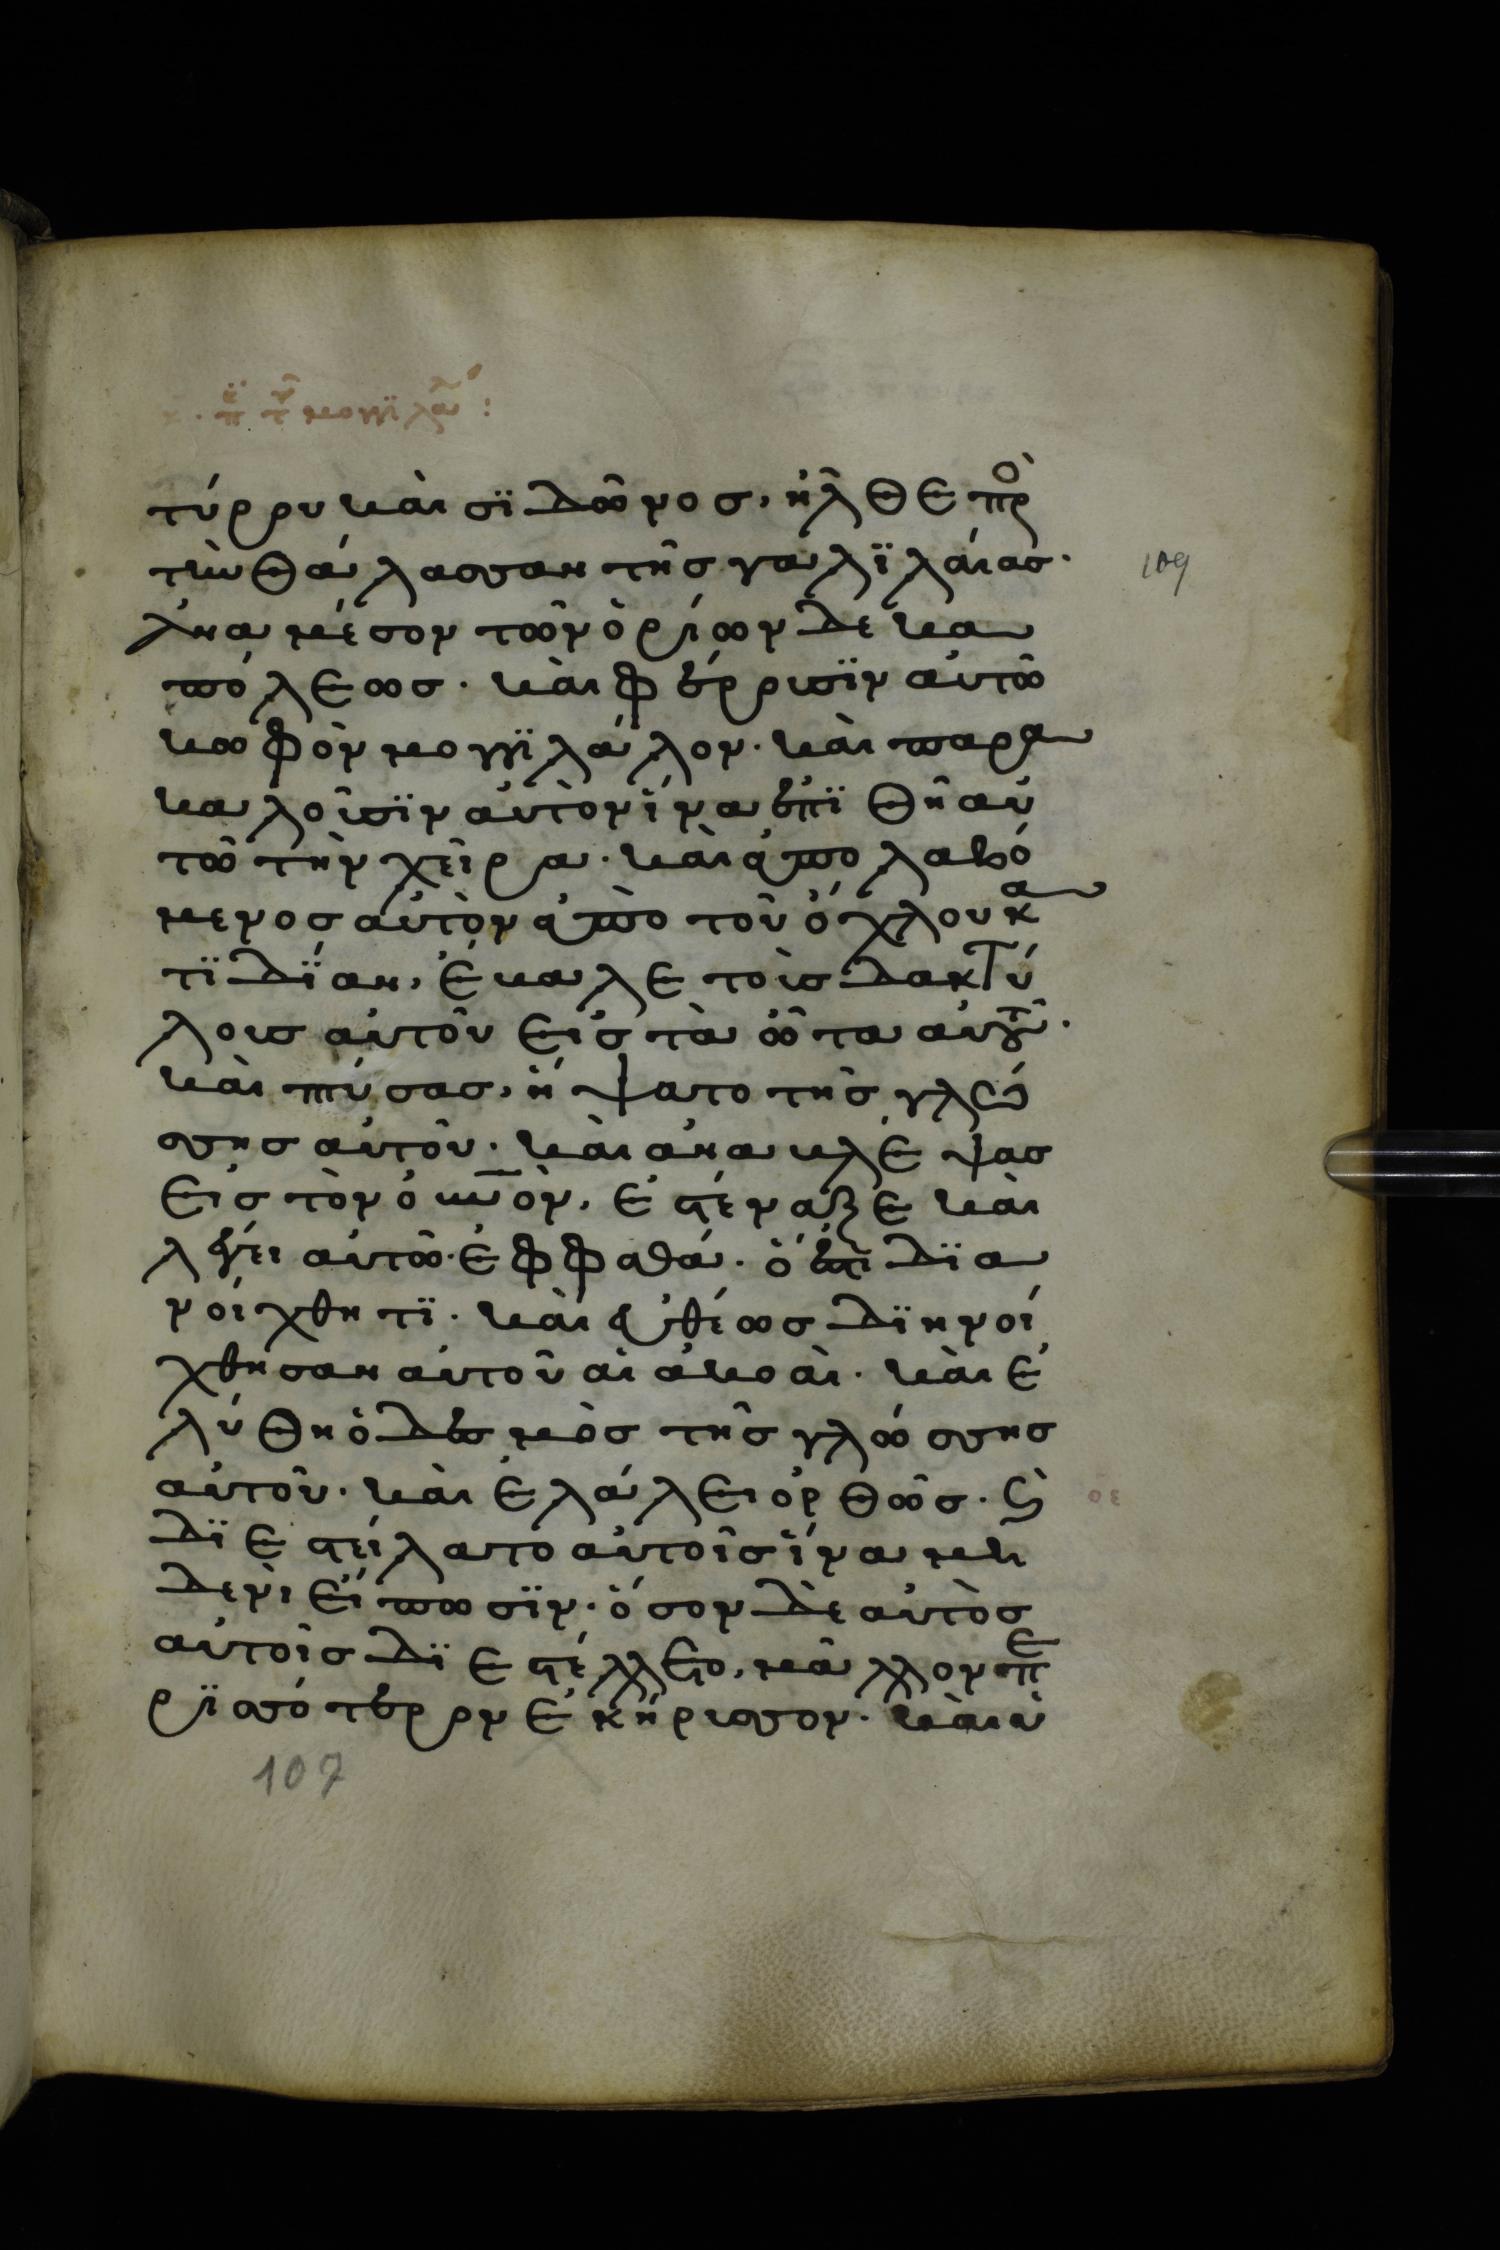 π̈ τ̑ μογγϊλα̑:
τύρου καὶ σϊδῶνος, ἦλθε πρὸ
τὴν θάλασσαν τῆς γαλϊλαίας·
ἀνα μέσον τῶν ὁρίων δεκα
πόλεως· καὶ φέρουσϊν αὐτῶ
κωφὸν μογγϊλάλον· καὶ παρα
καλοῦσϊν αὐτὸν ἵνα ἐπϊθῆ αὐ
τῶ τὴν χεῖρα· καὶ ἀπολαβό
μενος αὐτὸν ἀπὸ τοῦ ὄχλου κα
τϊδΐαν, ἔβαλε τοὺς δακτύ
λους αὐτοῦ εἰς τὰ ὦτα αὐτοῦ·
καὶ πτύσας, ἥψατο τῆς γλώ
σσης αὐτοῦ· καὶ ἀναβλέψας
εἰς τὸν οὐνὸν, ἐστέναξε καὶ
λέγει αὐτῶ· ἐφφαθά· ὅ ἐστι δϊα
νοίχθητϊ· καὶ εὐθέως δϊηνοί
χθησαν αὐτοῦ αἱ ἀκοαὶ· καὶ ἐ
λύθη ὁ δεσμὸς τῆς γλώσσης
αὐτοῦ· καὶ ἐλάλει ὀρθῶς· ϛ̀
δϊεστείλατο αὐτοῖς ἵνα μη
δενὶ εἴπωσϊν· ὅσον δὲ αὐτὸς
αὐτοῖς δϊεστέλλετο, μᾶλλον πε
ρϊσσότερον ἐκήρυσσον· καὶ ὑ
109
107